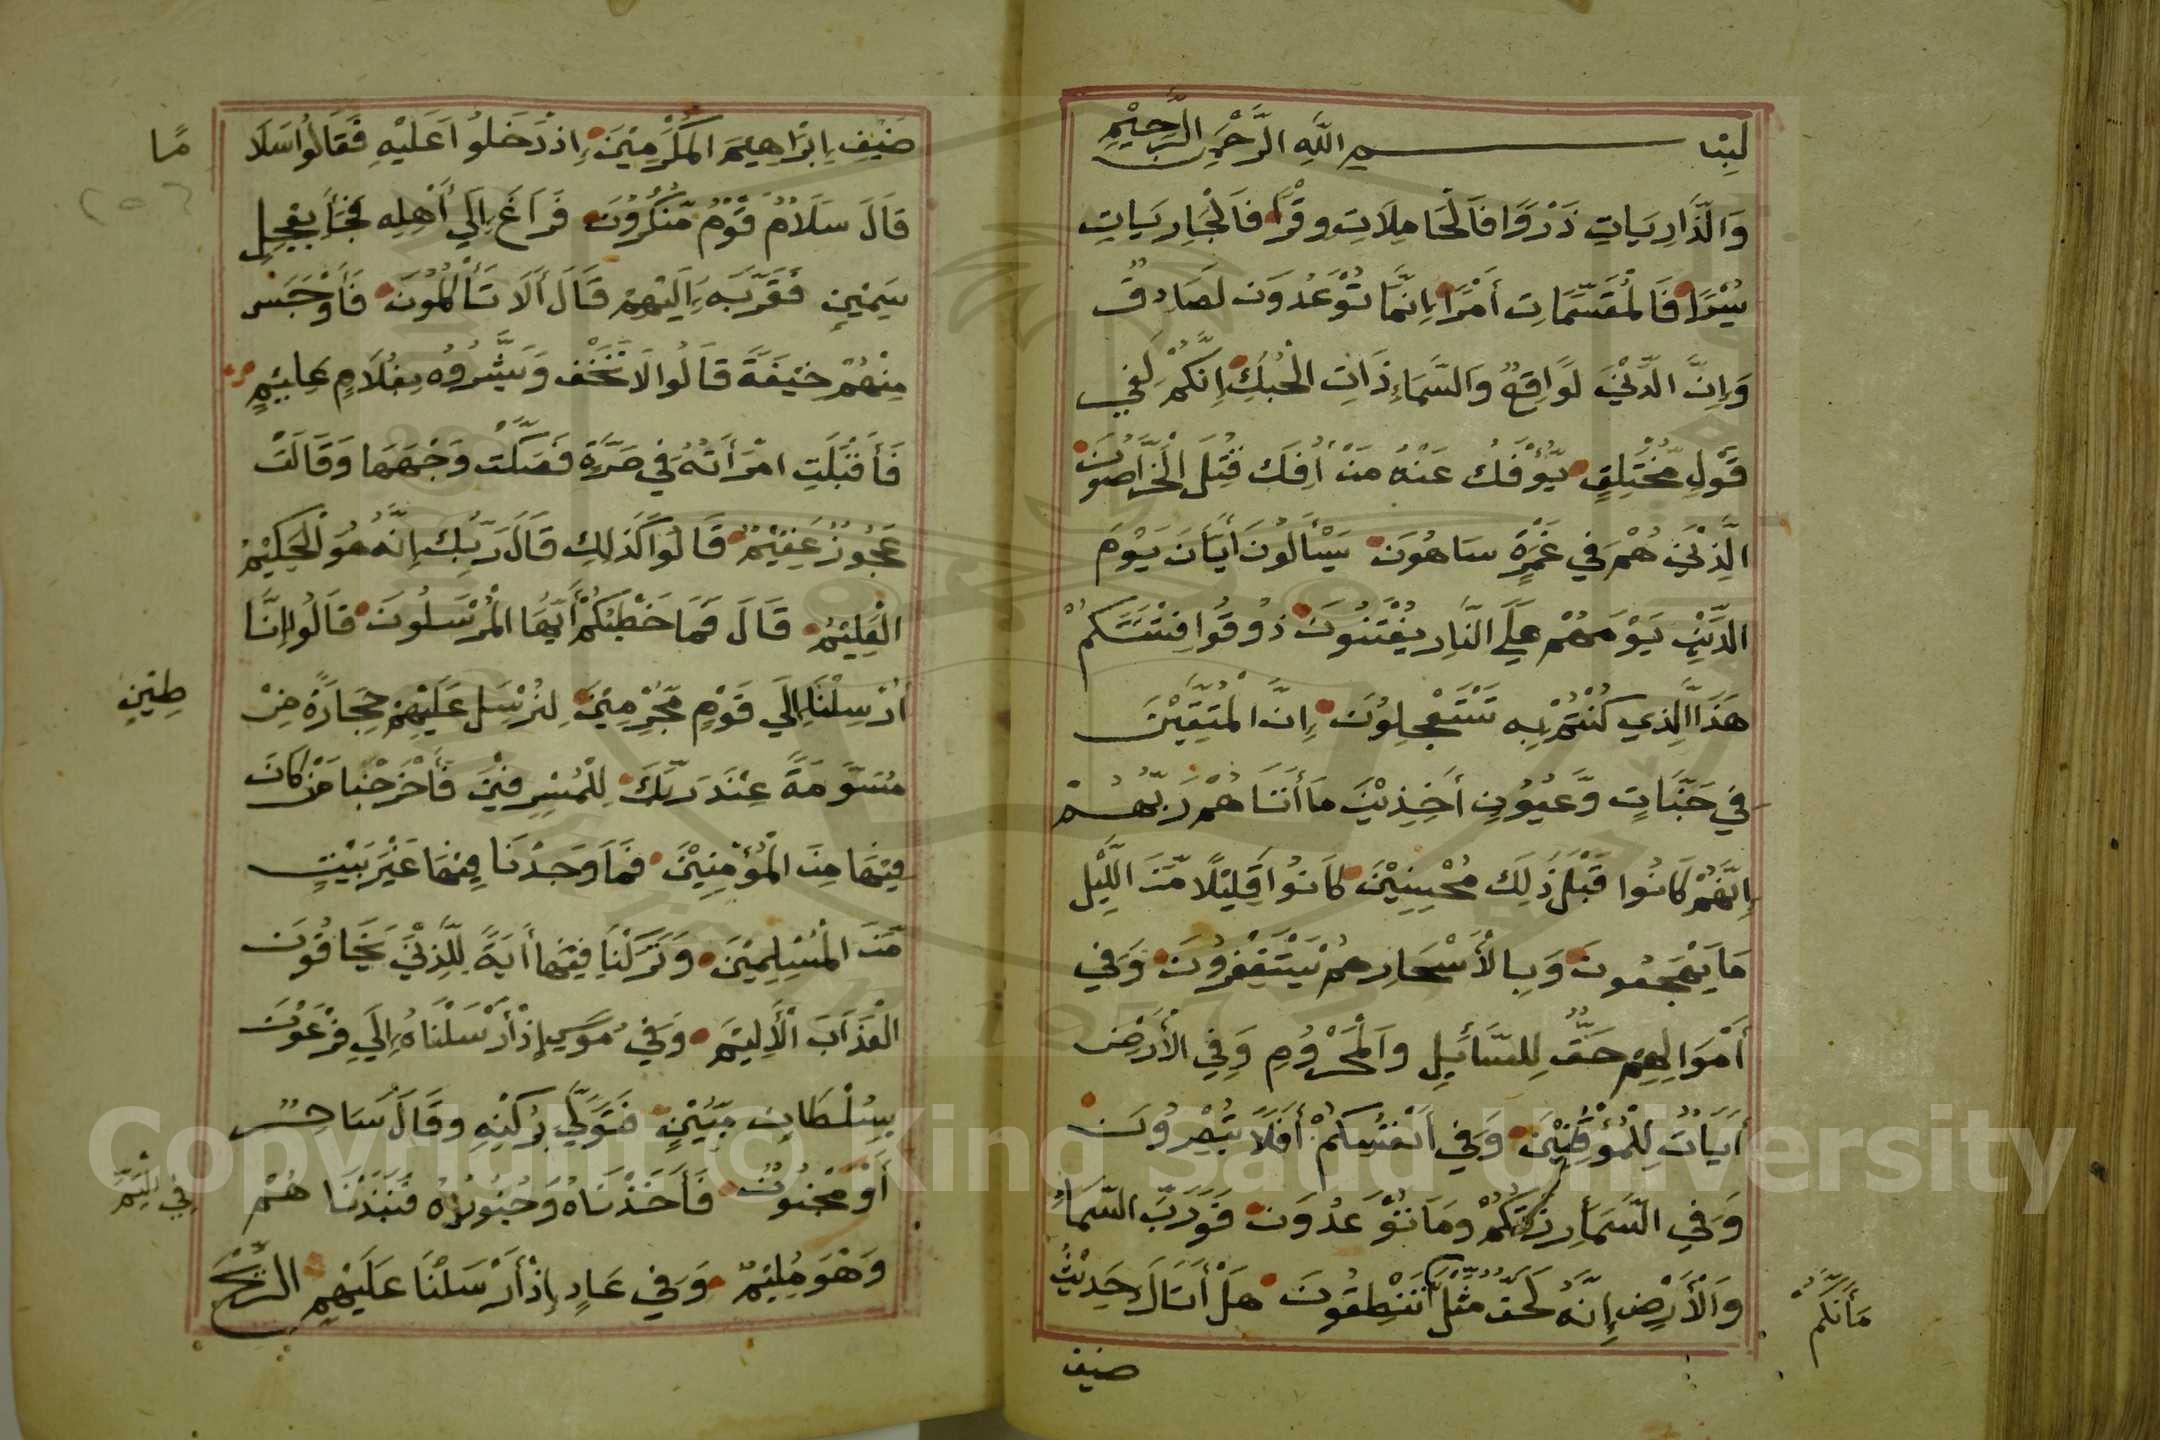 بسم الله الرحمن الرحيم
وَالذَّارِيَاتِ ذَرْوًا فَالْحَامِلَاتِ وِقْرًا فَالْجَارِيَاتِ
يُسْرًا فَالْمُقَسِّمَاتِ أَمْرًا إِنَّمَا تُوعَدُونَ لَصَادِقٌ
وَإِنَّ الدِّيْنَ لَوَاقِعٌ وَالسَّمَاءِ ذَاتِ الْحُبُكِ إِنَّكُمْ لَفِي
قَوْلٍ مُّخْتَلِفٍ يُؤْفَكُ عَنْهُ مَنْ أُفِكَ قُتِلَ الْخَرَّاصُونَ
الَّذِيْنَ هُمْ فِي غَمْرَةٍ سَاهُونَ يَسْأَلُونَ أَيَّانَ يَوْمُ
الدِّيْنِ يَوْمَ هُمْ عَلَى النَّارِ يُفْتَنُونَ ذُوقُوا فِتْنَتَكُمْ
هَذَا الَّذِي كُنْتُمْ بِهِ تَسْتَعْجِلُونَ إِنَّ الْمُتَّقِيْنَ
فِي جَنَّاتٍ وَّعُيُونٍ أَخِذِيْنَ مَا أَتَاهُمْ رَبُّهُمْ
إِنَّهُمْ كَانُوا قَبْلَ ذَلِكَ مُحْسِنِيْنَ كَانُوا قَلِيْلًا مِّنَ اللَّيْلِ
مَا يَهْجَعُونَ وَبِالْأَسْحَارِ هُمْ يَسْتَغْفِرُونَ وَفِي
أَمْوَالِهِمْ حَقٌّ لِلسَّائِلِ وَالْمَحْرُومِ وَفِي الْأَرْضِ
أَيَاتٌ لِلْمُوْقِنِيْنَ وَفِي أَنْفُسِكُمْ أَفَلَا تُبْصِرُونَ
وَفِي السَّمَاءِ رِزْقُكُمْ وَمَا تُوْعَدُونَ فَوَرَبِّ السَّمَاءِ
وَالْأَرْضِ إِنَّهُ لَحَقٌّ مِّثْلَ تَنْطِقُونَ هَلْ أَتَاكَ حَدِيْثُ
مَا أَنَّكُمْ
ضيف
ضَيْفِ إِبْرَاهِيمَ الْمُكْرَمِيْنَ إِذْ دَخَلُوا عَلَيْهِ فَقَالُوا سَلَا
مًا
قَالَ سَلَامٌ قَوْمٌ مُّنْكَرُونَ فَرَاغَ إِلَى أَهْلِهِ فَجَاءَ بِعِجْلٍ
سَمِيْنٍ فَقَرَّبَهُ إِلَيْهِمْ قَالَ أَلَا تَأْكُلُوْنَ فَأَوْجَسَ
مِنْهُمْ خِيْفَةً قَالُوا لَا تَخَفْ وَبَشَّرُوهُ بِغُلَامٍ عَلِيْمٍ
فَأَقْبَلَتِ امْرَأَتُهُ فِي صَرَّةٍ فَصَكَّتْ وَجْهَهَا وَقَالَتْ
عَجُوزٌ عَقِيْمٌ قَالُوا كَذَلِكِ قَالَ رَبُّكِ إِنَّهُ هُوَ الْحَكِيْمُ
الْعَلِيْمُ قَالَ فَمَا خَطْبُكُمْ أَيُّهَا الْمُرْسَلُونَ قَالُوا إِنَّا
أُرْسِلْنَا إِلَى قَوْمٍ مُّجْرِمِيْنَ لِنُرْسِلَ عَلَيْهِمْ حِجَارَةً مِّنْ
طِيْنٍ
مُسَوَّمَةً عِنْدَ رَبِّكَ لِلْمُسْرِفِيْنَ فَأَخْرَجْنَا مَنْ كَانَ
فِيْهَا مِنَ الْمُؤْمِنِيْنَ فَمَا وَجَدْنَا فِيْهَا غَيْرَ بَيْتٍ
مِّنَ الْمُسْلِمِيْنَ وَتَرَكْنَا فِيْهَا أَيَةً لِلَّذِيْنَ يَخَافُونَ
الْعَذَابَ الْأَلِيْمَ وَفِي مُوسَى إِذْ أَرْسَلْنَاهُ إِلَى فِرْعَوْنَ
بِسُلْطَانٍ مُّبِيْنٍ فَتَوَلَّى بِرُكْنِهِ وَقَالَ سَاحِرٌ
أَوْ مَجْنُونٌ فَأَخَذْنَاهُ وَجُنُودَهُ فَنَبَذْنَا هُمْ
فِي الْيَمِّ
وَهُوَ مُلِيْمٌ وَفِي عَادٍ إِذْ أَرْسَلْنَا عَلَيْهِمُ الرِّيْحَ
Copyright © King Saud University